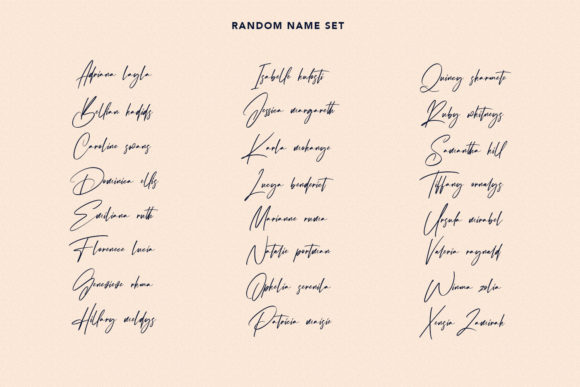 RANDOM NAME SET
Adriana layla
Bellian haddds
Caroline swans
Dominica ells
Emiliana ruth
Florenece lucia
Genevieve
Hillary meldys
Isabelle
Jessica margareth
Karla mohange
Lucya benderict
Marianne ruma
Natalie portman
Ophelia serenila
Patricia maisie
Quincy sharmete
Ruby whitneys
Samantha hill
Tiffany ornalys
Ursula mirabel
Valeria raynald
Winma zolia
Xensia Zamirak